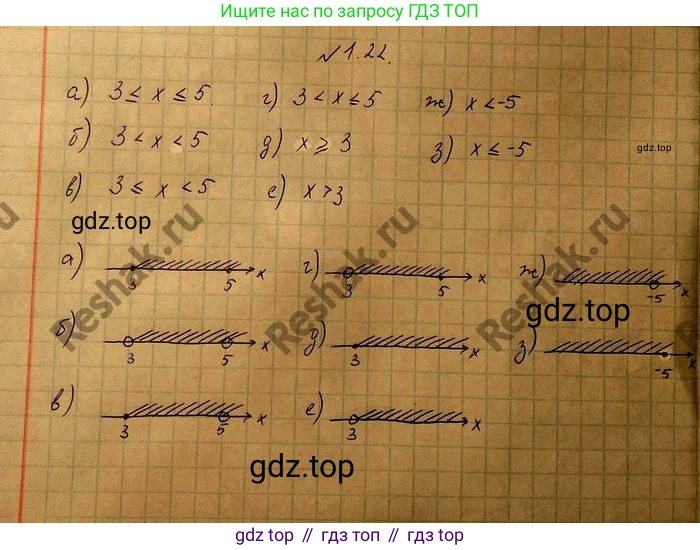 Ищите нас по запросу ГДЗ ТОП
№1.22.
а) 3 ≤ x ≤ 5. г) 3 < x ≤ 5 ж) x < -5
б) 3 < x < 5 д) x ≥ 3 з) x ≤ -5
gdz.top
в) 3 ≤ x < 5 е) x > 3
gdz.top
Reshak.ru Reshak.ru Reshak.ru
а) 3 5 x г) 3 5 x ж) -5 x
gdz.top
б) 3 5 x д) 3 x з) -5 x
в) 3 5 x е) 3 x
gdz.top
gdz.top // гдз топ // gdz.top